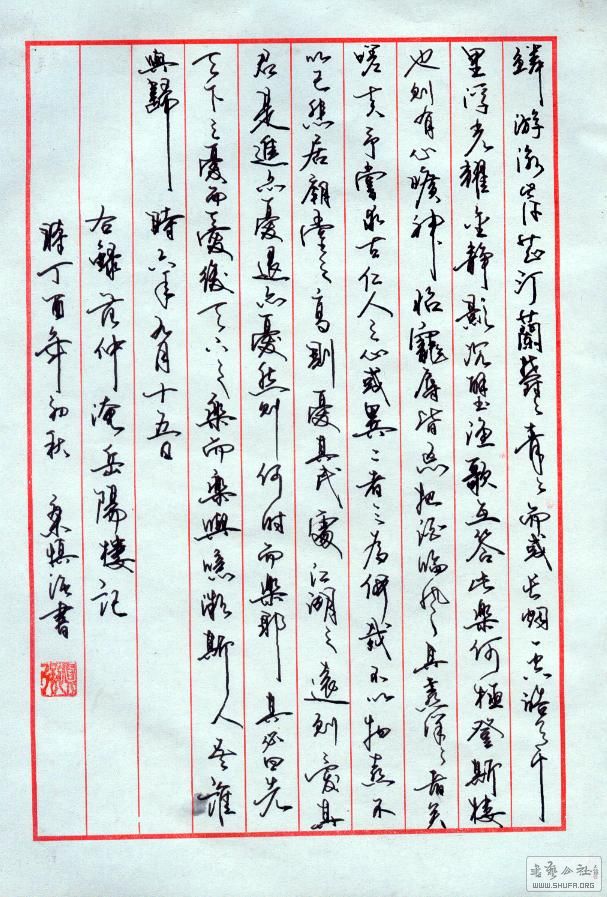 鳞游泳岸芷汀蘭郁々青々而或长烟一空皓月千
里浮光耀金静影沉璧渔歌互答此樂何極登斯楼
也则有心曠神怡寵辱皆忘把酒临风其喜洋々者矣
嗟夫予嘗求古仁人之心或異二者之为何哉不以物喜不
以己悲居廟堂之高則憂其民處江湖之遠则憂其
君是進亦憂退亦憂然则何时而樂耶其必曰先
天下之憂而憂後天下之樂而樂與噫微斯人吾誰
與歸時六年九月十五日
右錄范仲淹岳陽楼记
時丁酉年初秋 書
WWW.SHUFA.ORG